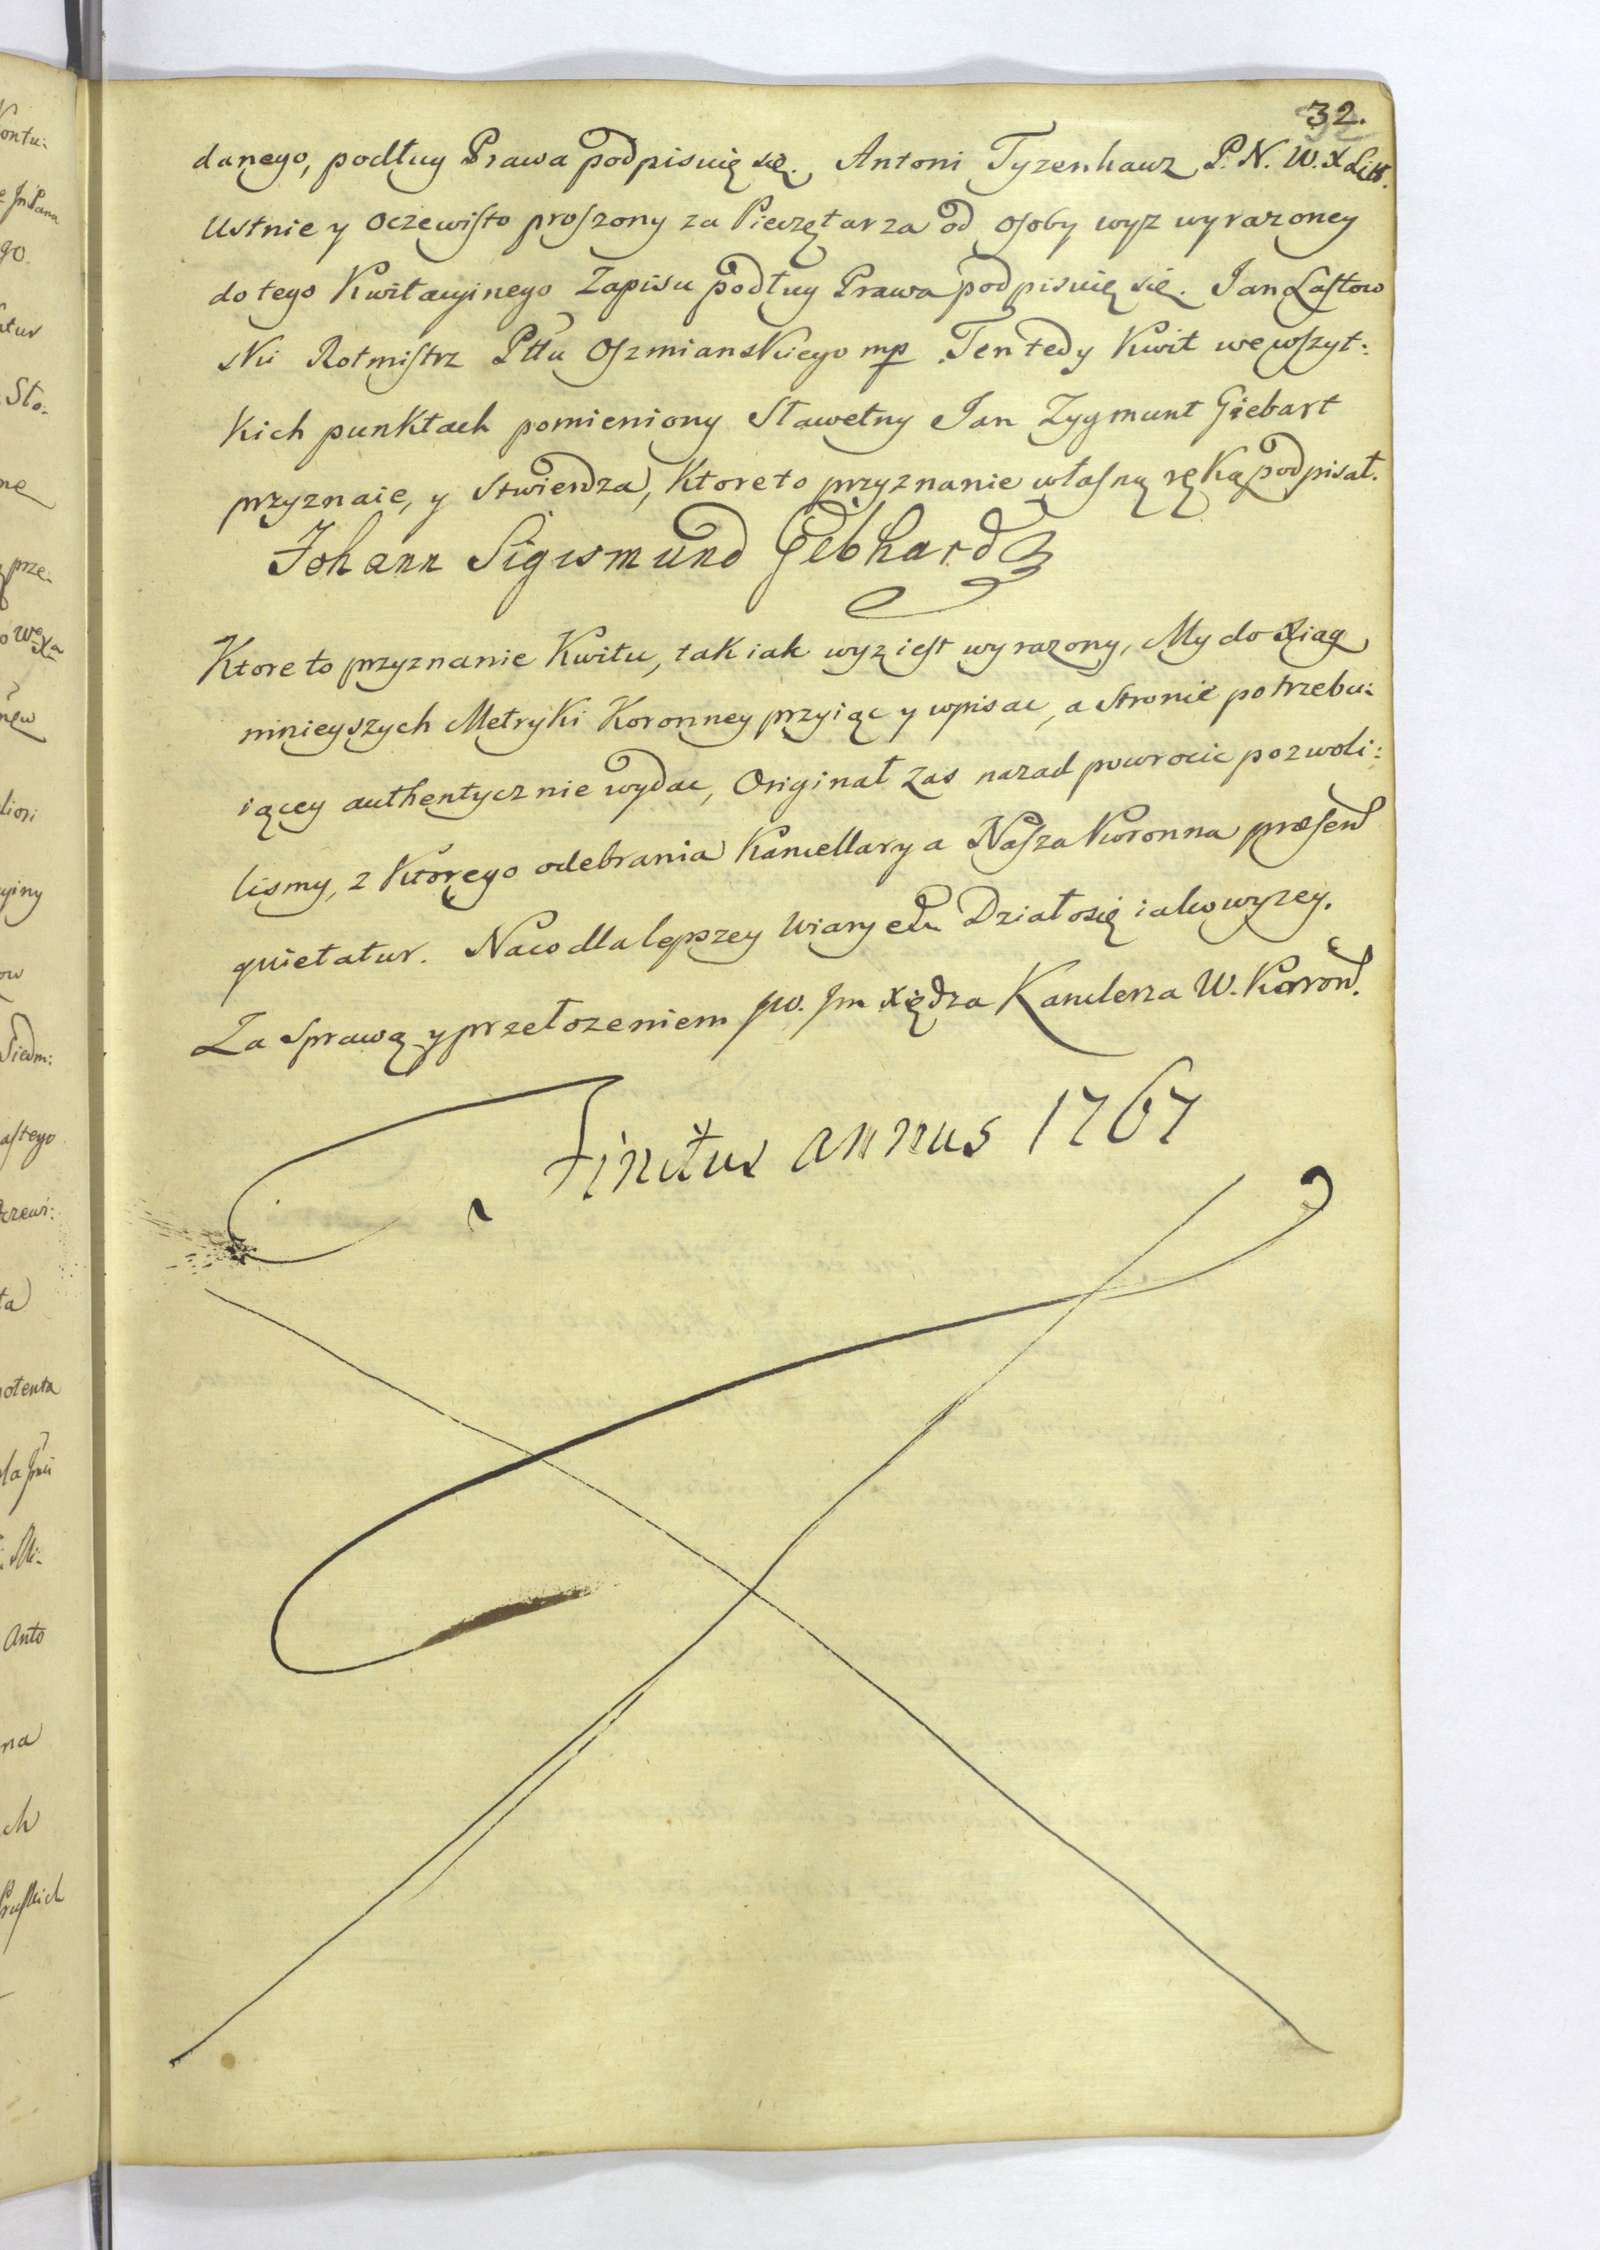 32.
danego, podług Prawa podpisuię się. Antoni Tyzenhauz P. N. W. X Litt.
Ustnie y Oczewisto proszony za Pieczętarza od osoby wyz wyrazoney
do tego Kwitacyinego Zapisu podług Prawa podpisuię się. Jan Lastow
ski Rotmistrz Pttu Oszmianskiego mp Ten tedy Kwit we wszyt:
kich punktach pomieniony Sławetny Jan Zygmunt Giebart
przyznaie, y stwierdza, Ktore to przyznanie własną ręką podpisał.
Johann Sigismund Gebhard
Ktore to przyznanie Kwitu, tak iak wyz iest wyrazony, My do Xiąg
ninieyszych Metryki Koronney przyiąc y wpisac, a stronie potrzebu:
iącey authentycznie wydac, Originał zas nazad powrocic pozwoli:
lismy, z Ktorego odebrania Kancellarya Nasza Koronna præsen
quietatur. Naco dla lepszey Wiary etc Działo się iako wyzey.
Za sprawą y przełozeniem jw. Jm Xiędza Kanclerza W. Koron.
Finitus annus 1767